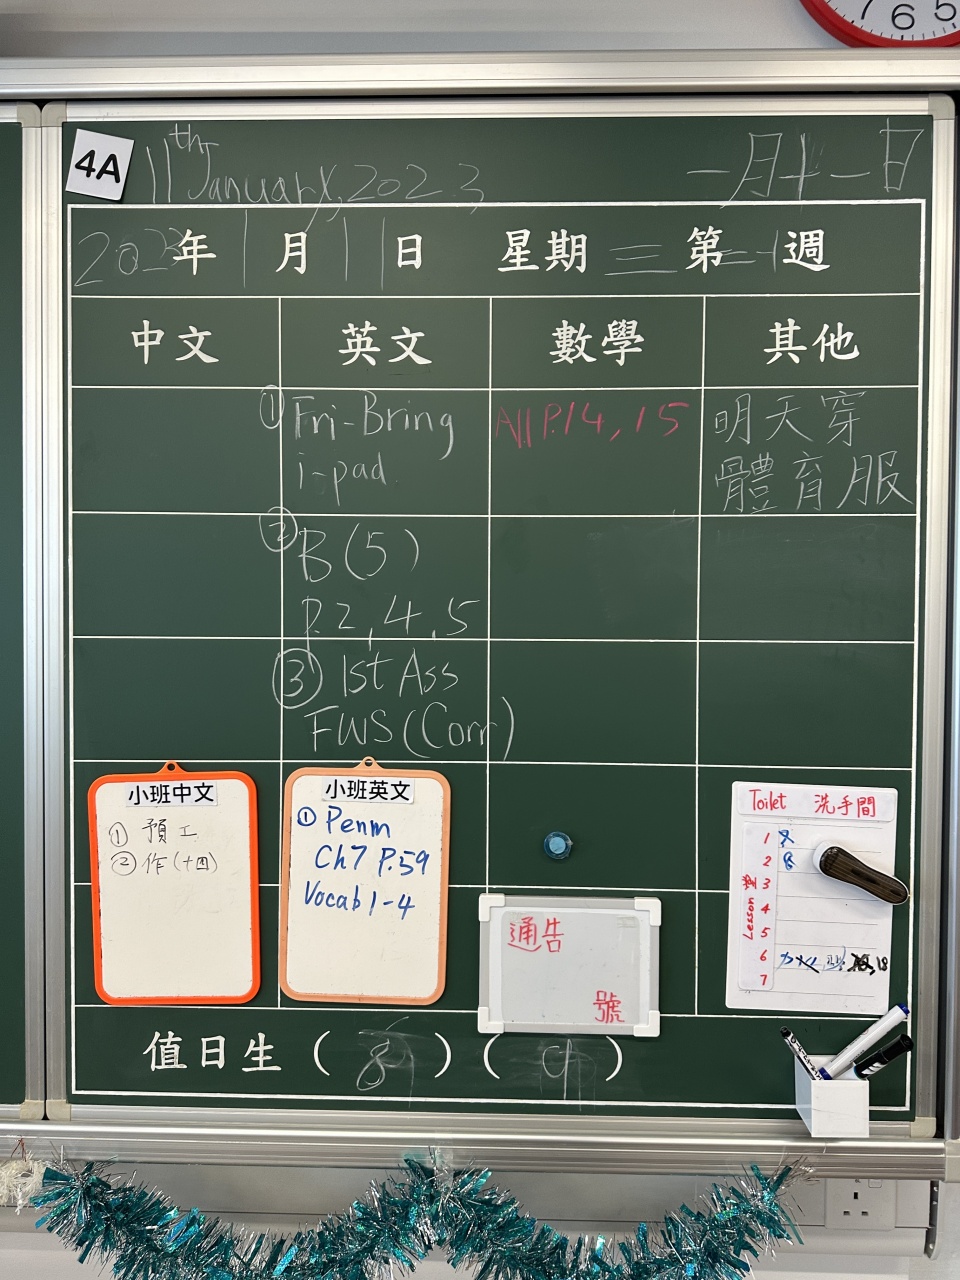 7 6 5
4A
11th January, 2023
一月十一日
2023年1月11日 星期三 第二十一週
中文 英文 數學 其他
① Fri-Bring
i-pad
All P.14, 15
明天穿
體育服
② B(5)
P.2, 4, 5
③ 1st Ass
FWS (Corr)
小班中文
① 預工
② 作(十四)
小班英文
① Penm
Ch7 P.59
Vocab 1-4
通告
號
Toilet 洗手間
Lesson 堂
1
2 8
3
4
5
6
7
值日生 ( 8 ) ( 9 )